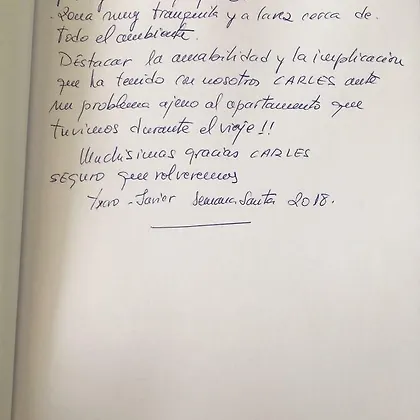 Zona muy tranquila y a la vez cerca de
todo el ambiente.
DEstacar la amabilidad y la implicación
que ha tenido con nosotros CARLES ante
un problema ajeno al apartamento que
tuvimos durante el viaje!!
Muchisimas gracias CARLES
SEGURO que volveremos
Javier Semana Santa 2018.